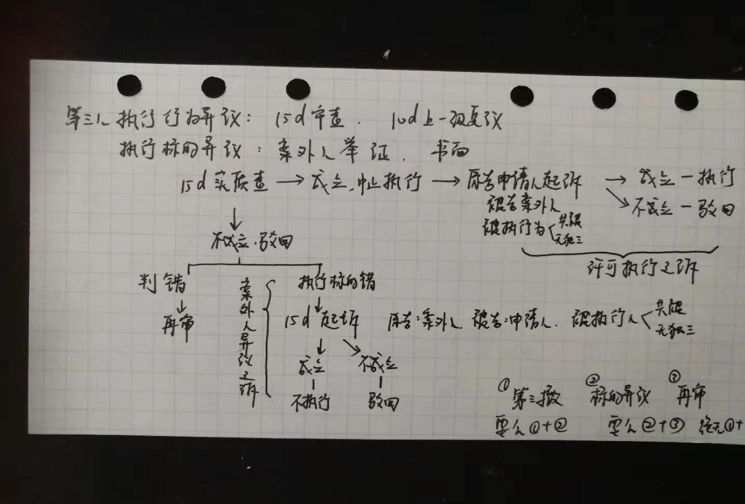 第三人执行行为异议：15d审查．10d上一级复议
执行标的异议：案外人举证．书面
15d实质查→成立．中止执行→原告申请人起诉→成立一执行
被告案外人 不成立一驳回
被执行为 共被
无独三
许可执行之诉
不成立．驳回
判错 执行标的错
再审
案外人异议之诉
15d起诉 原告：案外人．被告：申请人．被执行人 共被
无独三
成立 不成立
不执行 驳回
①第三撤 ②标的异议 ③再审
要么①+② 要么②+③ 绝无①+